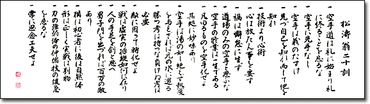 松濤翁二十訓
一 空手道は礼に始まり礼
に終ることを忘るな
一 空手に先手なし
一 空手は義の補け
一 先づ自己を知れ而して他を
知れ
一 技術より心術
一 心は放たん事を要す
一 禍は懈怠に生ず
一 道場のみの空手と思ふな
一 空手の修業は一生である
一 凡ゆるものを空手化せよ
其処に妙味あり
一 空手は湯の如し絶えず熱
度を与えざれば元の水に還る
一 勝つ考は持つな負けぬ考は
必要
一 敵に因って轉化せよ
一 戦は虚実の操縦如何に在り
一 人の手足を剣と思へ
一 男子門を出づれば百万の敵
あり
一 構は初心者に後は自然体
一 形は正しく実戦は別物
一 力の強弱体の伸縮技の緩急
一 常に思念工夫せよ